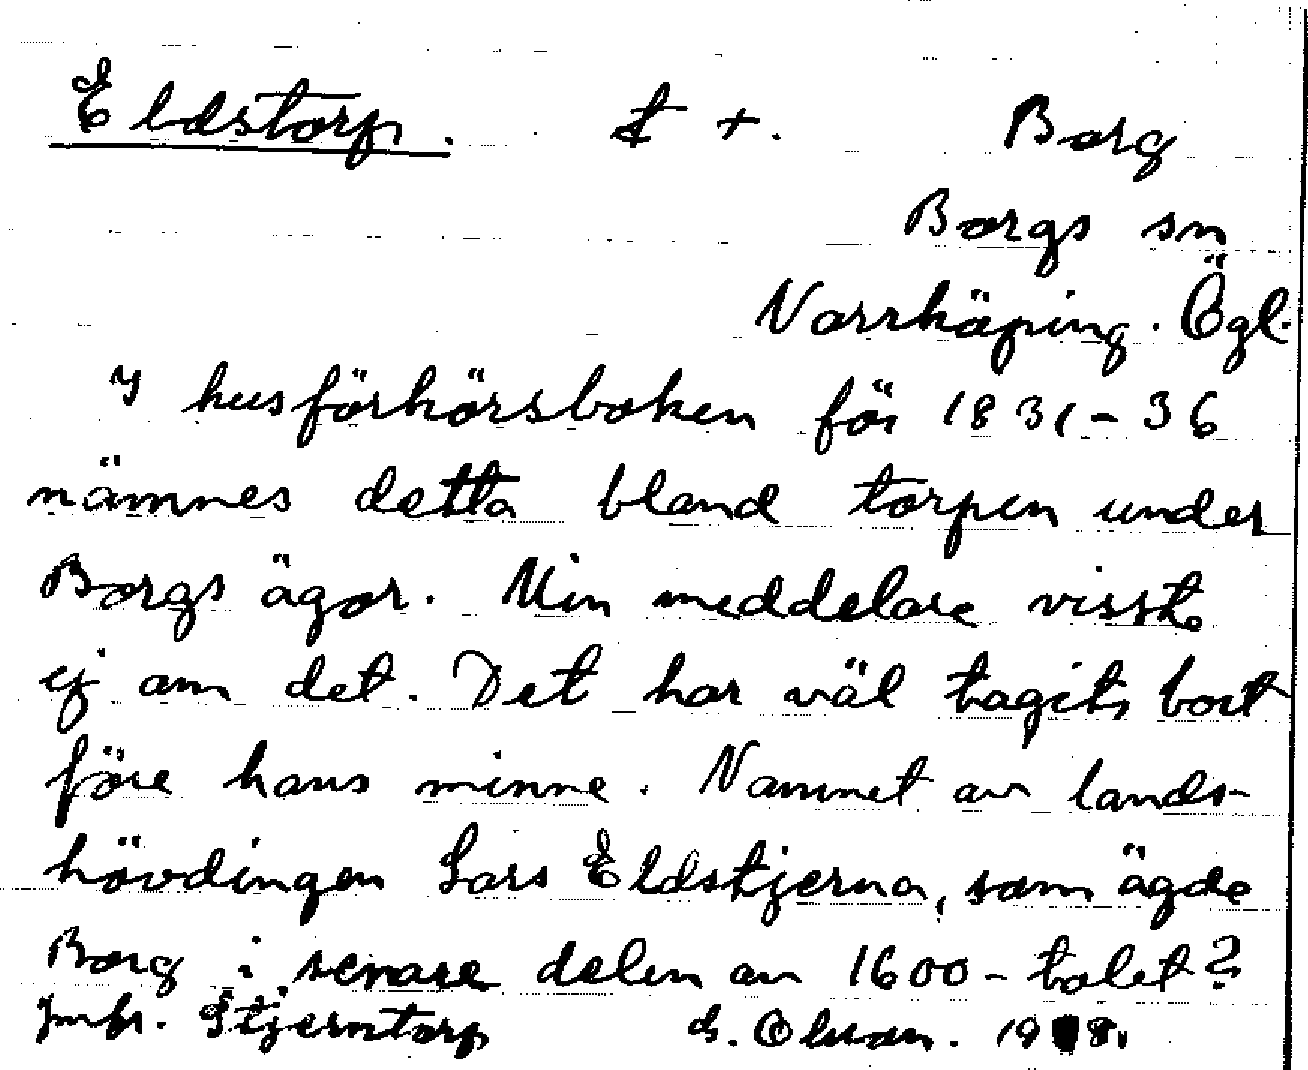 Eldstorp. t +. Borg
Borgs sn
Norrköping. Ögl.
I husförhörsboken för 1831-36
nämnes detta bland torpen under
Borgs ägor. Min meddelare visste
ej om det. Det har väl tagits bort
före hans minne. Namnet av lands-
hövdingen Lars Eldstjerna, som ägde
Borg i senare delen av 1600-talet?
Jmfr. Stjerntorp G. Olsson. 19